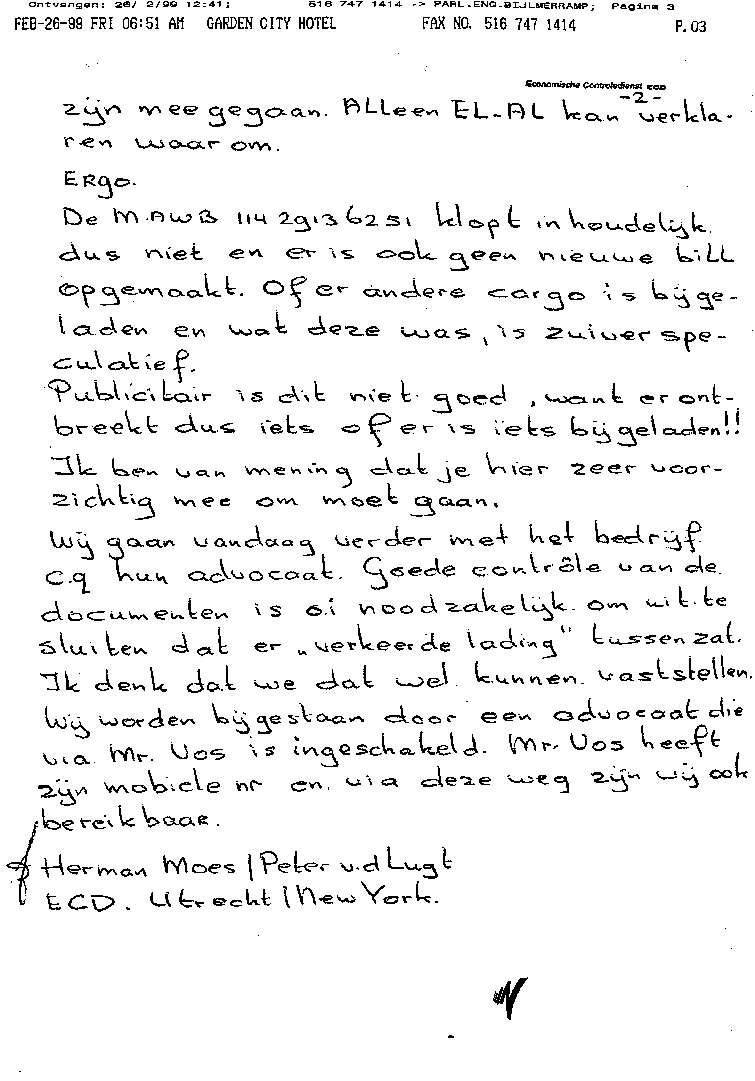 Ontvangen: 26/ 2/99 12:41; 516 747 1414 -> PARL.ENQ.BIJLMERRAMP; Pagina 3
FEB-26-99 FRI 06:51 AM GARDEN CITY HOTEL FAX NO. 516 747 1414 P.03
Economische Controledienst ECD
-2-
zijn meegegaan. Alleen EL-AL kan verkla-
ren waarom.
Ergo.
De M.AWB 114 29136251 klopt inhoudelijk
dus niet en er is ook geen nieuwe bill
opgemaakt. Of er andere cargo is bijge-
laden en wat deze was, is zuiver spe-
culatief.
Publicitair is dit niet goed, want er ont-
breekt dus iets of er is iets bijgeladen!!
Ik ben van mening dat je hier zeer voor-
zichtig mee om moet gaan.
Wij gaan vandaag verder met het bedrijf
c.q hun advocaat. Goede contrôle van de
documenten is o.i noodzakelijk om uit te
sluiten dat er „verkeerde lading" tussen zat.
Ik denk dat we dat wel kunnen vaststellen.
Wij worden bijgestaan door een advocaat die
via Mr. Vos is ingeschakeld. Mr. Vos heeft
zijn mobiele nr en via deze weg zijn wij ook
bereikbaar.
Herman Moes / Peter v.d Lugt
ECD. Utrecht / New York.